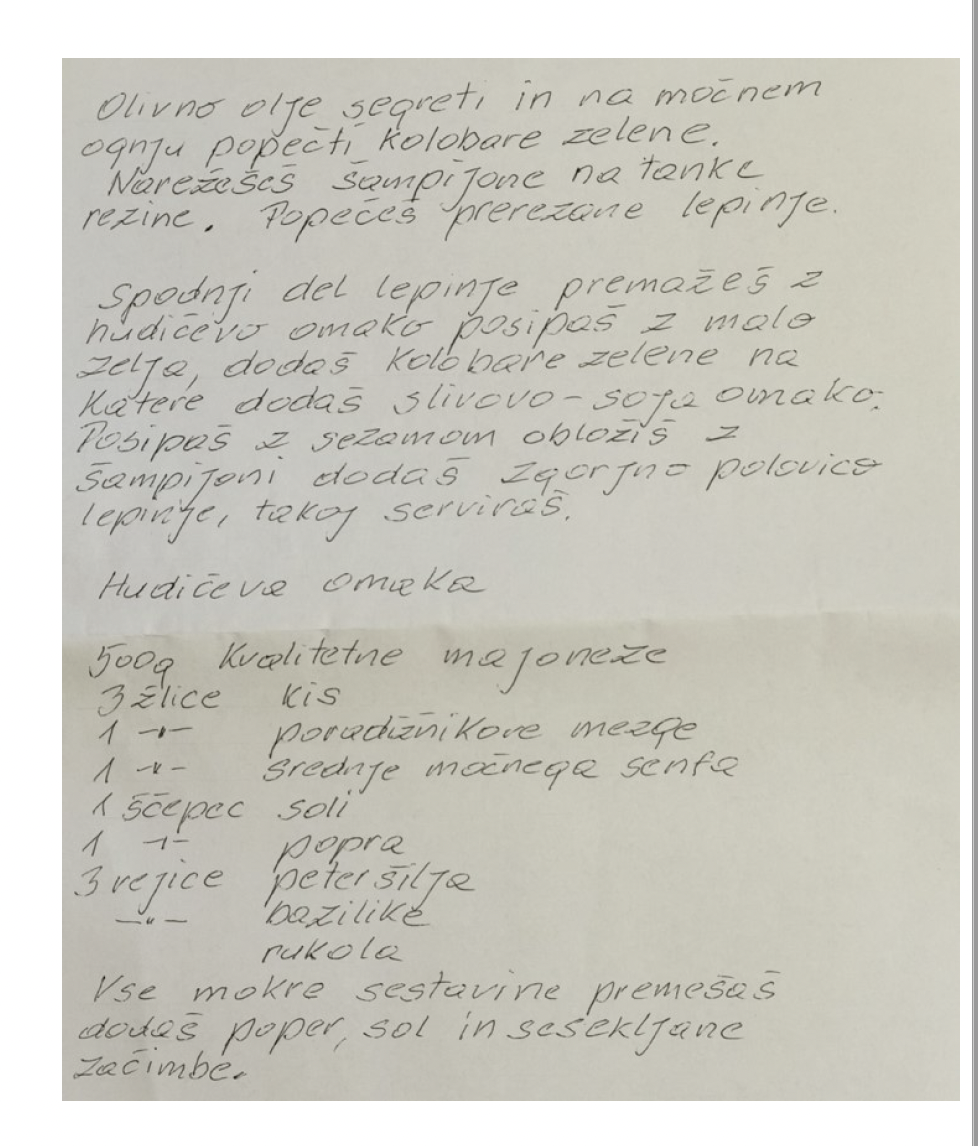 Olivno olje segreti in na močnem
ognju popečti kolobare zelene.
Narežešeš šampijone na tanke
rezine. Popečeš prerezane lepinje.
Spodnji del lepinje premažeš z
hudičevo omako posipaš z malo
zelja, dodaš kolobare zelene na
katere dodaš slivovo-soja omako.
Posipaš z sezamom obložiš z
šampijoni dodaš zgorjno polovico
lepinje, takoj serviraš.
Hudičeva omaka
500g Kvalitetne majoneze
3 žlice kis
1 -"- poradižnikove mezge
1 -"- srednje močnega senfa
1 ščepec soli
1 -"- popra
3 vejice peteršilja
-"- bazilike
rukola
Vse mokre sestavine premešaš
dodaš poper, sol in sesekljane
začimbe.